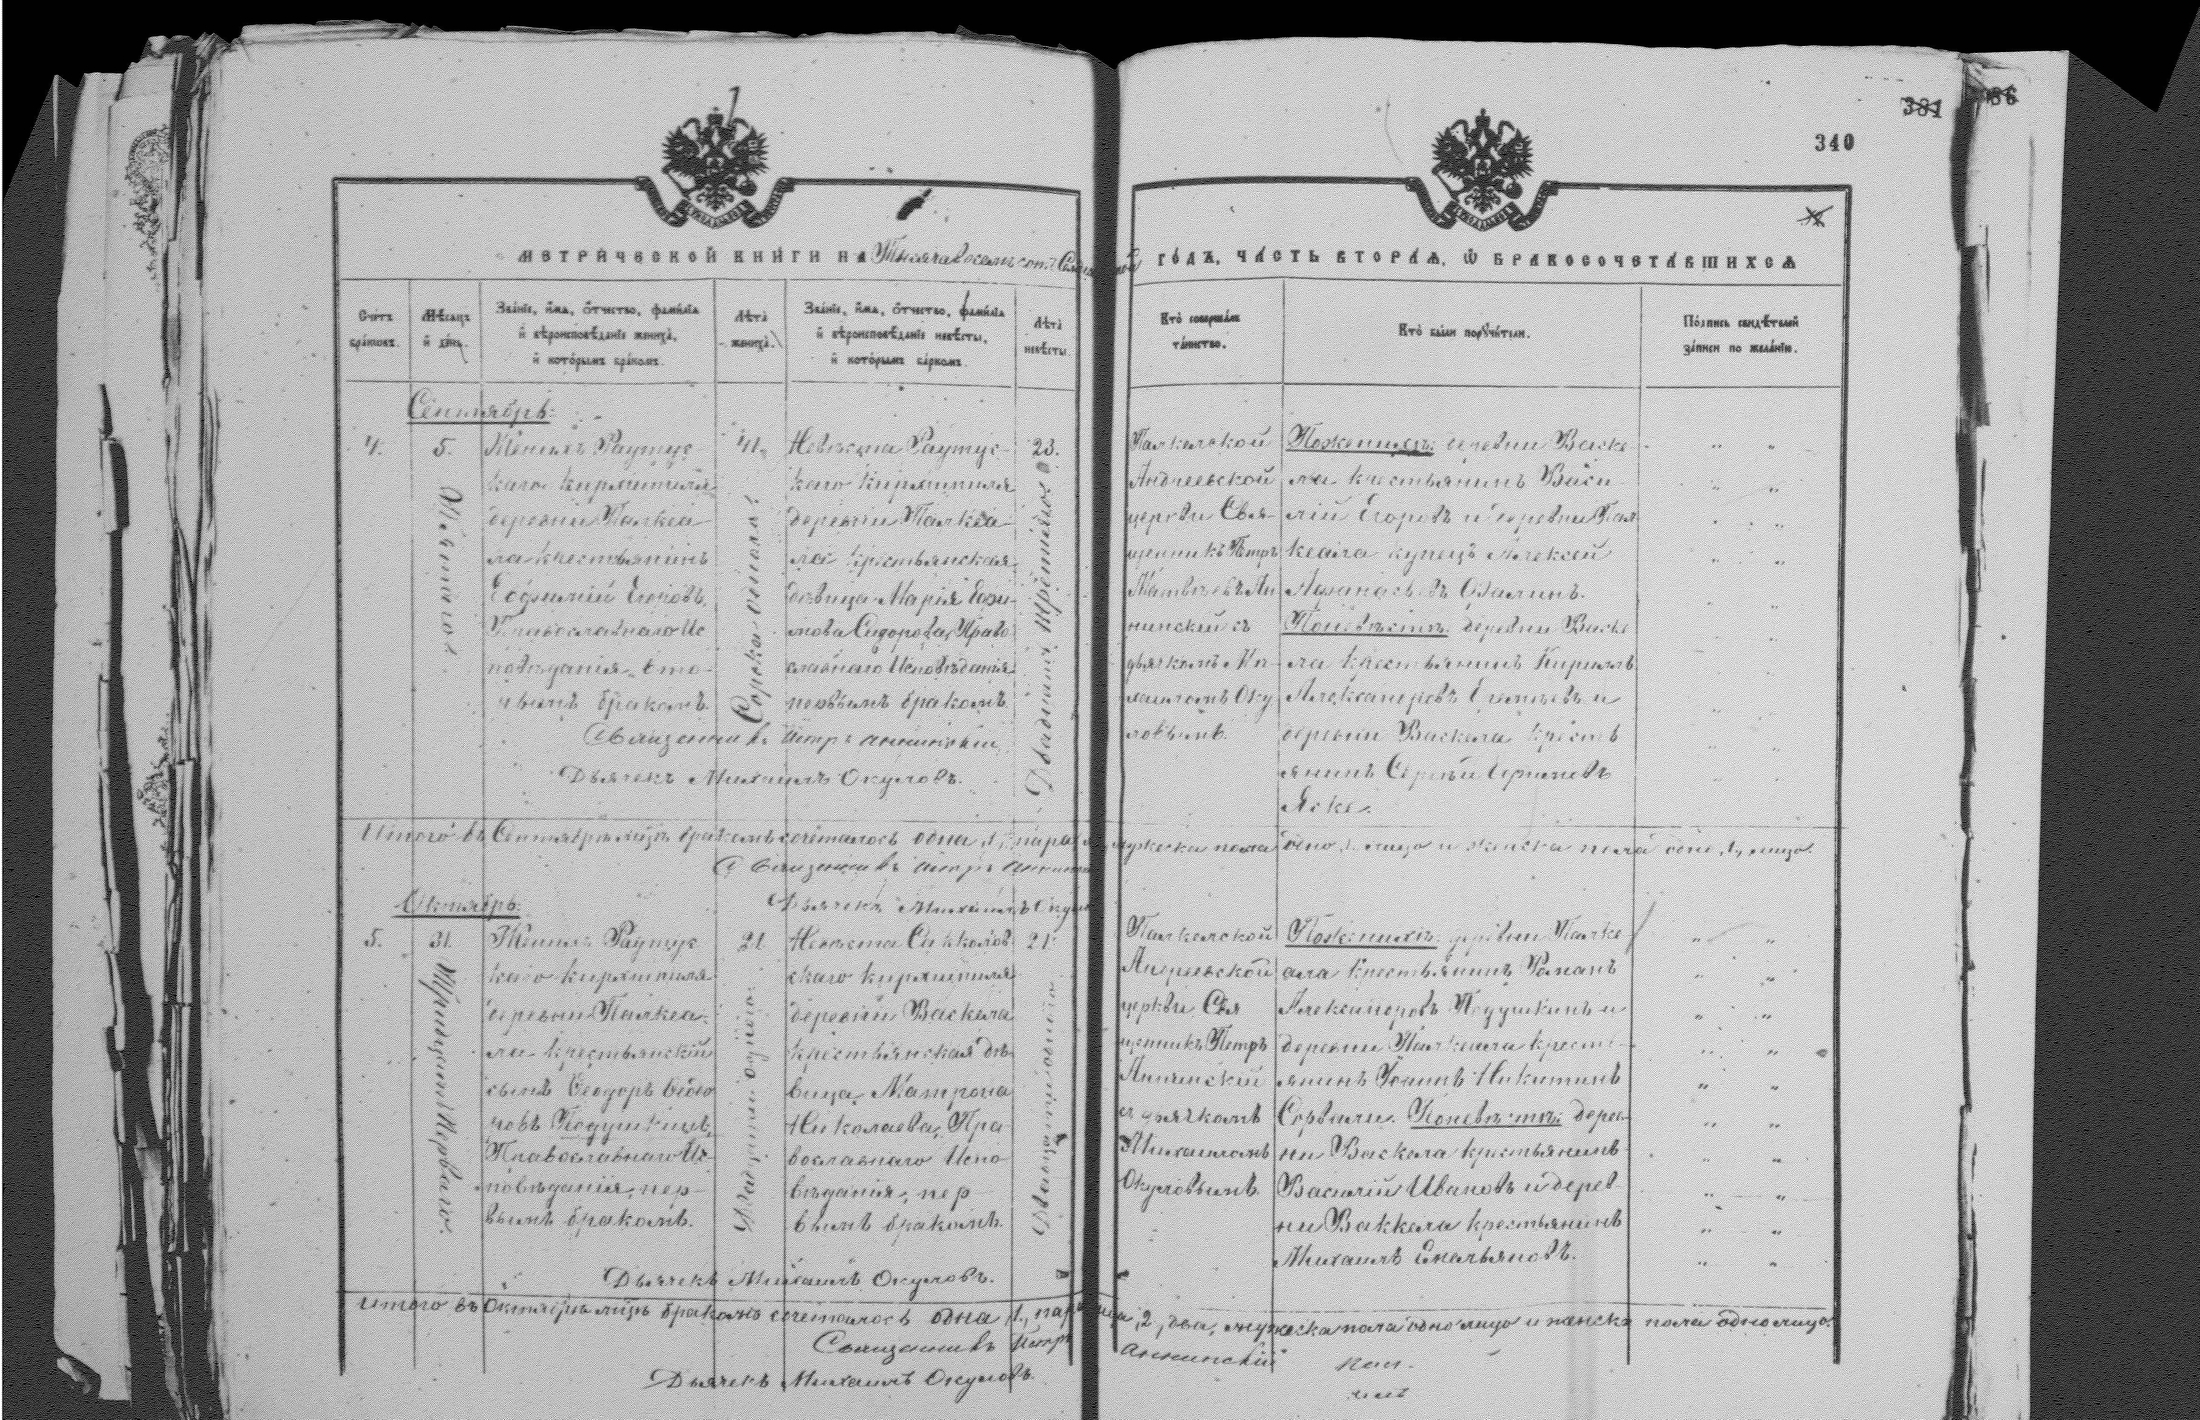 381
86
340
МЕТРИЧЕСКОЙ КНИГИ НА Тысяча восемь сотъ
ГОДЪ, ЧАСТЬ ВТОРАЯ, Ѡ БРАКОСОЧЕТАВШИХСЯ
Счетъ браковъ.
Мѣсяцъ и день.
Званіе, имя, отчество, фамилія
и вѣроисповѣданіе жениха,
и которымъ бракомъ.
Лѣта жениха.
Званіе, имя, отчество, фамилія
и вѣроисповѣданіе невѣсты,
и которымъ бракомъ.
Лѣта невѣсты.
Кто совершалъ таинство.
Кто были поручители.
Подпись свидѣтелей
записи по желанію.
Сентябрь:
4.
5.
Пятаго
Женихъ Раутус-
каго кирхшпиля
деревни Палкеа-
ла крестьянинъ
Егоровъ,
Православнаго Ис
повѣданія, вто-
рымъ бракомъ.
41.
Сорока одного
Невѣста Раутус-
каго кирхшпиля
деревни Палкеа-
ла крестьянская
дѣвица Марія
Сидорова, Право
славнаго Исповѣданія
первымъ бракомъ.
23.
Двадцати трехъ
Священникъ Петръ Аннинскій
Дьячекъ Михаилъ Окуловъ.
Палкельской
Андреевской
церкви Свя-
щенникъ Петръ
Ан
нинскій съ
дьячкомъ Ми-
хаиломъ Оку
ловымъ.
По женихѣ: деревни Васке-
ла крестьянинъ Васи
лій Егоровъ и деревни Пал
кеала купецъ Алексей
По невѣстѣ: деревни Васке
ла крестьянинъ Кириллъ
Александровъ и
деревни Васкела кресть
янинъ Сергѣй
Яске.
Итого въ Сентябрѣ мѣцѣ бракомъ сочеталось одна, 1, пара мужеска пола одно, 1, лицо и женска пола одно, 1, лицо.
Священникъ Петръ
Дьячекъ Михаилъ
Октябрь:
5.
31.
Тридцать Перваго
Женихъ Раутус
каго кирхшпиля
деревни Палкеа-
ла крестьянскій
сынъ Ѳеодоръ
Подушкинъ,
Православнаго Ис-
повѣданія, пер-
вымъ бракомъ.
21
Двадцати одного
Невѣста
скаго кирхшпиля
деревни Васкела
крестьянская дѣ-
вица Матрона
Николаева, Пра-
вославнаго Испо
вѣданія, пер-
вымъ бракомъ.
21
Двадцати одного
Дьячекъ Михаилъ Окуловъ.
Палкельской
Андреевской
церкви Свя
щенникъ Петръ
Аннинскій
съ дьячкомъ
Михаиломъ
Окуловымъ
По женихѣ: деревни Палке
ала крестьянинъ Романъ
Александровъ Подушкинъ и
деревни Палкеала кресть-
янинъ Никитинъ
По невѣстѣ: дерев-
ни Васкела крестьянинъ
Василій Ивановъ и дерев-
ни Ваккела крестьянинъ
Михаилъ Емельяновъ.
Итого въ Октябрѣ мѣцѣ бракомъ сочеталось одна, 1, пара, лица, 2, два, мужеска пола одно лицо и женска пола одно лицо.
Священникъ Петръ Аннинскій
Дьячекъ Михаилъ Окуловъ.